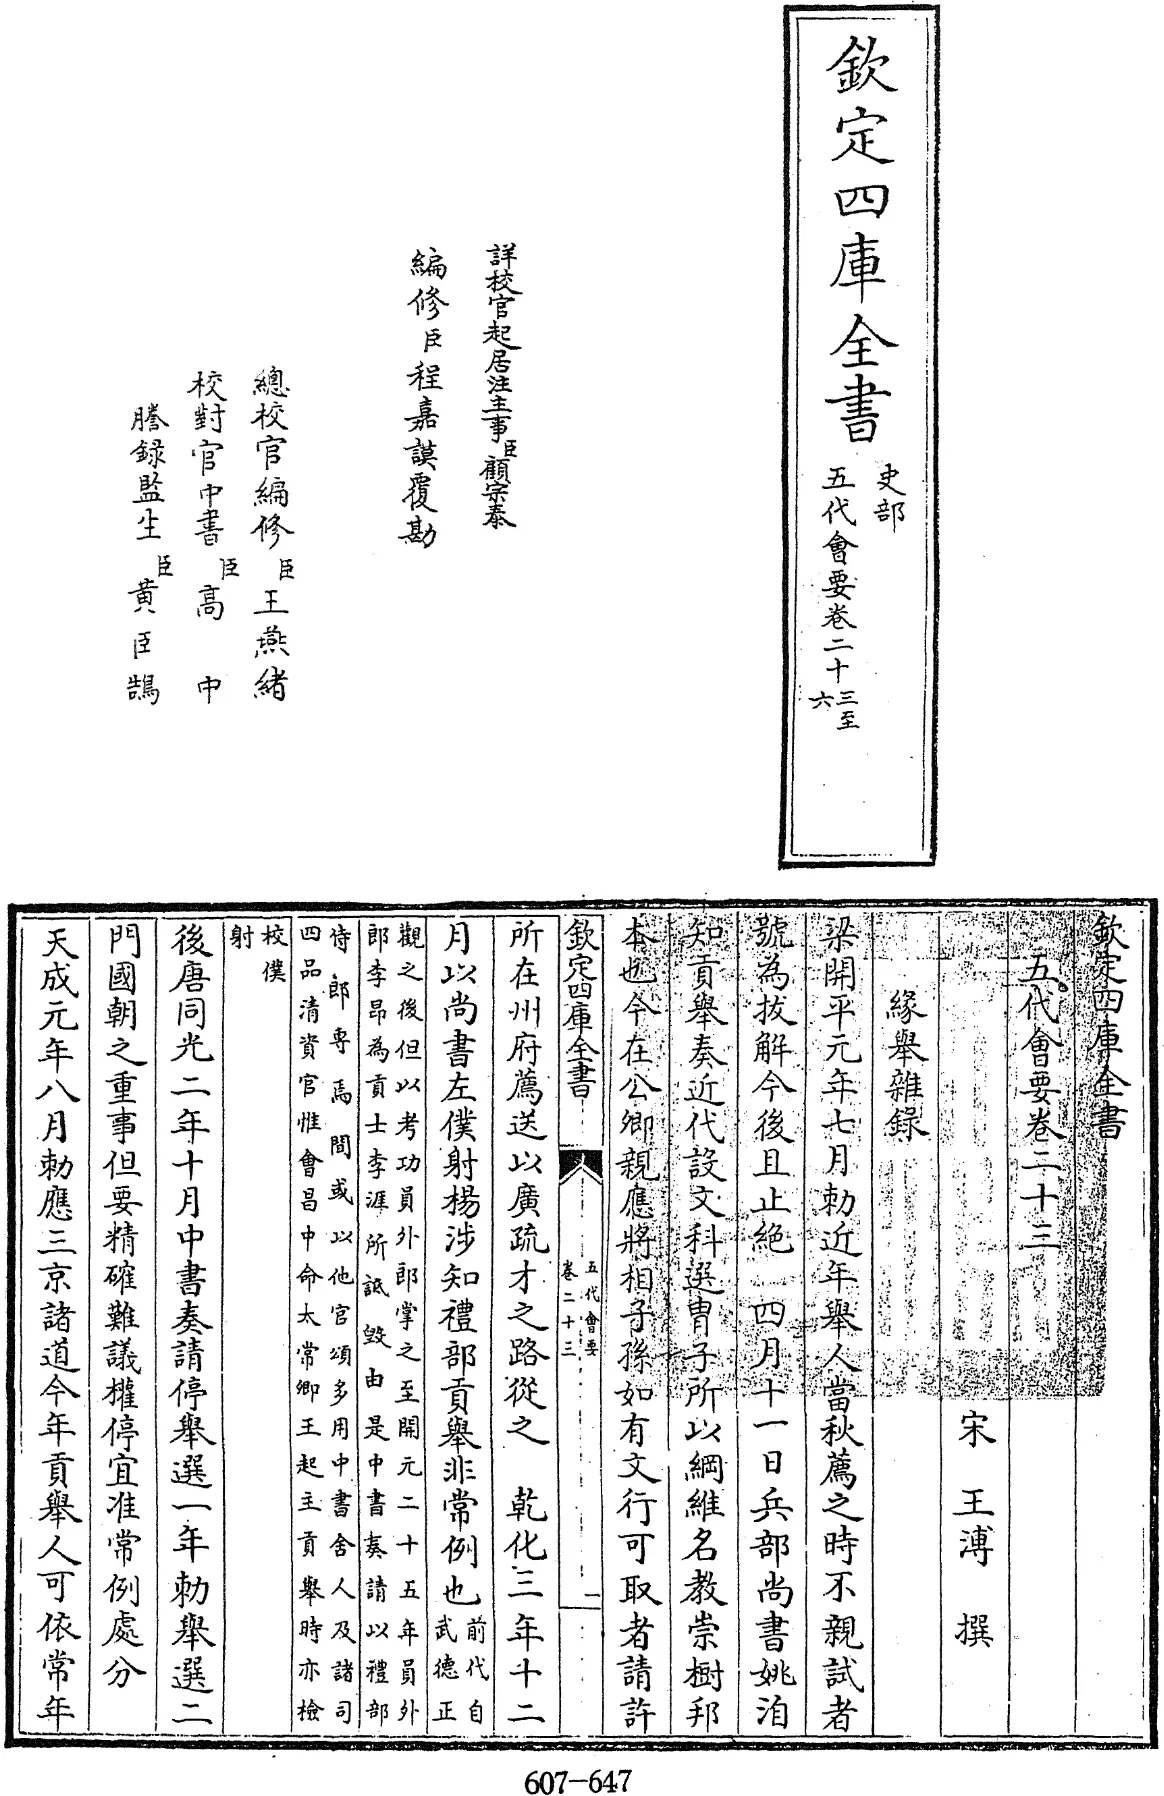 欽定四庫全書
史部
五代會要卷二十三至
六
詳校官起居注主事臣顧宗泰
編修臣程嘉謨覆勘
總校官編修臣王燕緒
校對官中書臣高中
謄録監生臣黃臣鵠
欽定四庫全書
五代會要卷二十三
宋 王溥 撰
緣舉雜錄
梁開平元年七月勅近年舉人當秋薦之時不親試者
號為拔解今後且止絶 四月十一日兵部尚書姚洎
知貢舉奏近代設文科選胄子所以綱維名教崇樹邦
本也今在公卿親應將相子孫如有文行可取者請許
欽定四庫全書
五代會要
卷二十三
一
所在州府薦送以廣疏才之路從之 乾化三年十二
月以尚書左僕射楊涉知禮部貢舉非常例也前代自
武德正
觀之後但以考功員外郎掌之至開元二十五年員外
郎李昂為貢士李涯所詆毀由是中書奏請以禮部
侍郎專焉間或以他官領多用中書舍人及諸司
四品清資官惟會昌中命太常卿王起主貢舉時亦檢
校僕
射
後唐同光二年十月中書奏請停舉選一年勅舉選二
門國朝之重事但要精確難議權停宜准常例處分
天成元年八月勅應三京諸道今年貢舉人可依常年
607-647